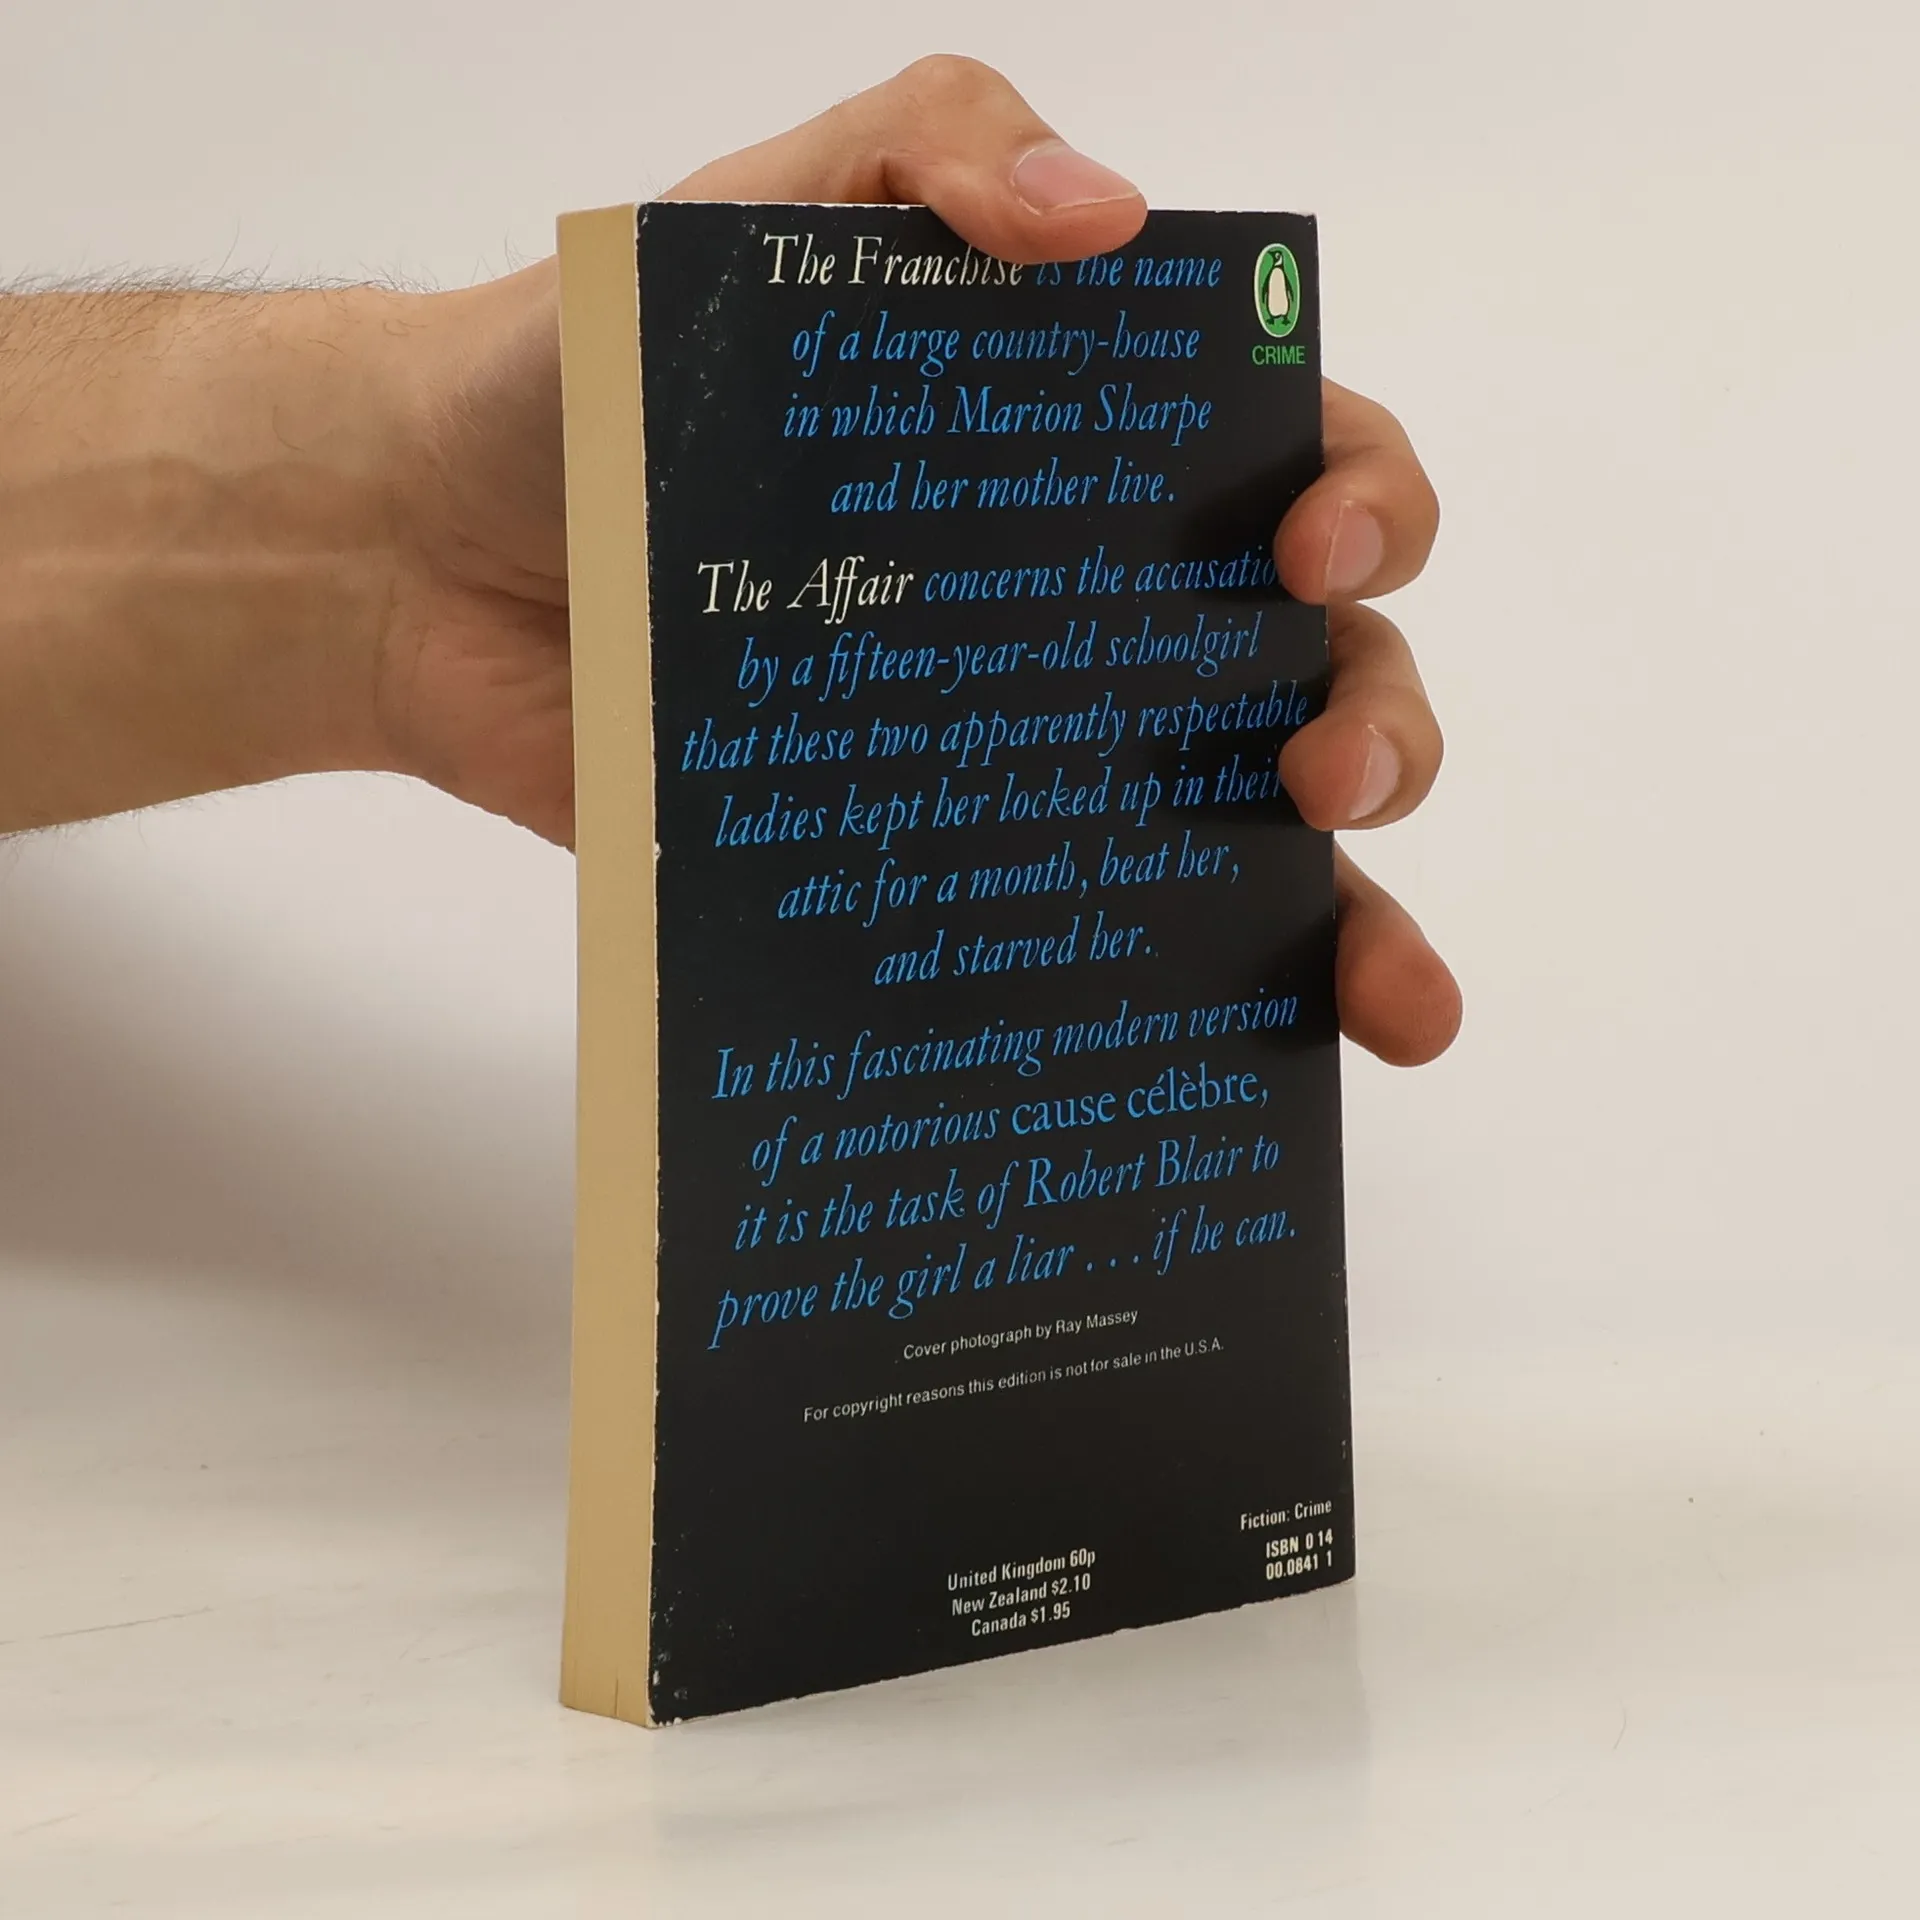 The Franchise is the name
CRIME
of a large country-house
in which Marion Sharpe
and her mother live.
The Affair concerns the accusatio
by a fifteen-year-old schoolgirl
that these two apparently respectable
ladies kept her locked up in their
attic for a month, beat her,
and starved her.
In this fascinating modern version
of a notorious cause célèbre,
it is the task of Robert Blair to
prove the girl a liar . . . if he can.
Cover photograph by Ray Massey
For copyright reasons this edition is not for sale in the U.S.A.
United Kingdom 60p
New Zealand $2.10
Canada $1.95
Fiction: Crime
ISBN 0 14
00.0841 1